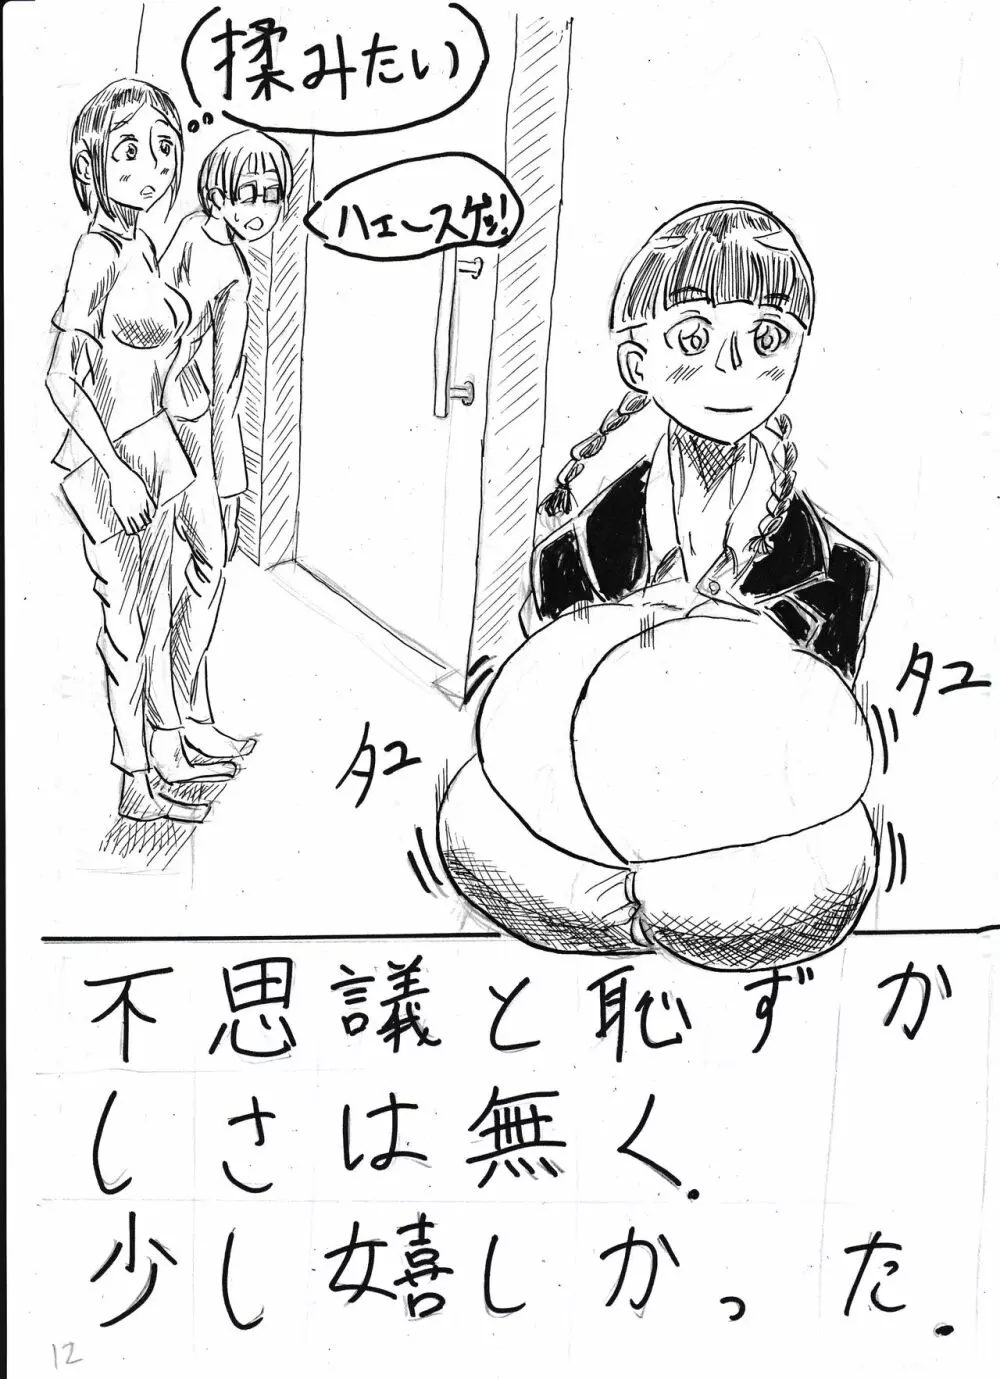 揉みたい
ハェースゲッ!
タユ
タユ
不思議と恥ずか
しさは無く.
少し嬉しかった.
12